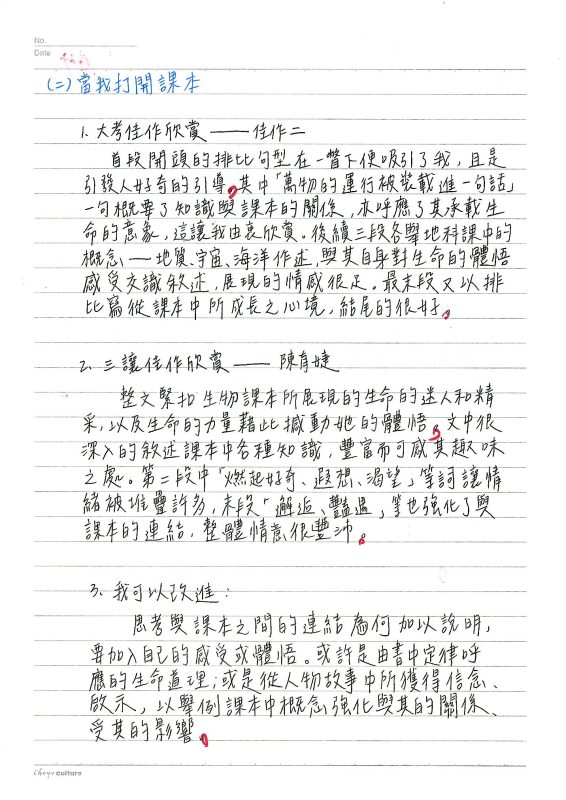 No.
Date
(二)當我打開課本
1. 大考佳作欣賞——佳作二
首段開頭的排比句型在一瞥下便吸引了我,且是
引發人好奇的引導,其中「萬物的運行被裝載進一句話」
一句概要了知識與課本的關係,亦呼應了其承載生
命的意象,這讓我由衷欣賞。後續三段各舉地科課中的
概念—地質、宇宙、海洋作述,與其自身對生命的體悟
感受交識敘述,展現的情感很足。最末段又以排
比寫從課本中所成長之心境,結尾的很好。
2. 三讓佳作欣賞——陳育婕
整文緊扣生物課本所展現的生命的迷人和精
采,以及生命的力量藉此撼動她的體悟。文中很
深入的敘述課本中各種知識,豐富而可感其趣味
之處。第二段中「燃起好奇、遐想、渴望」等詞讓情
緒被堆疊許多,末段「邂逅、豔遇」等也強化了與
課本的連結,整體情意很豐沛。
3. 我可以改進:
思考與課本之間的連結為何加以說明,
要加入自己的感受或體悟。或許是由書中定律呼
應的生命道理;或是從人物故事中所獲得信念、
啟示,以舉例課本中概念強化與其的關係、
受其的影響。
culture